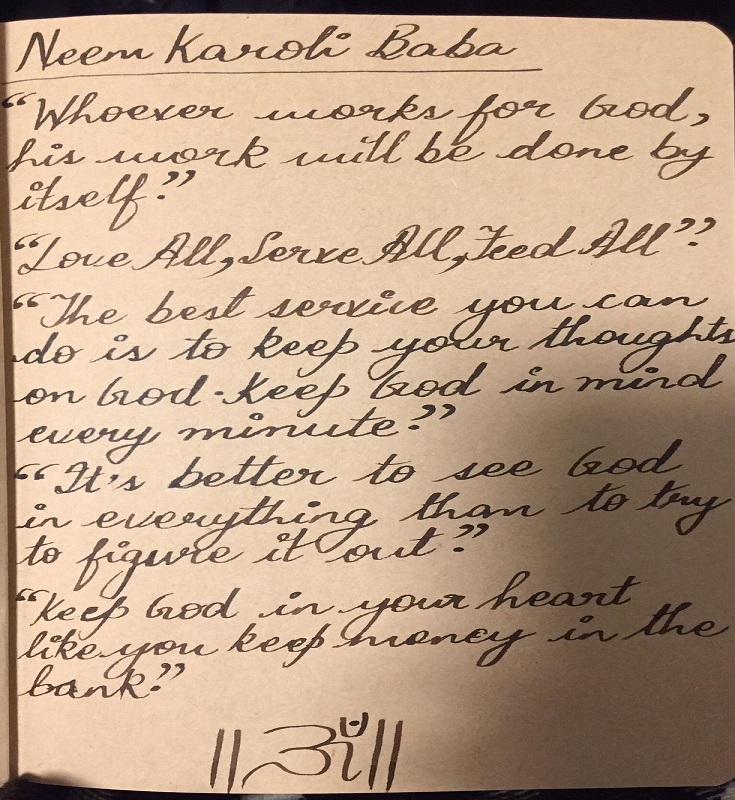 Neem Karoli Baba
“Whoever works for God,
his work will be done by
itself.”
“Love All, Serve All, Feed All”
“The best service you can
do is to keep your thoughts
on God. Keep God in mind
every minute.”
“It's better to see God
in everything than to try
to figure it out.”
“Keep God in your heart
like you keep money in the
bank.”
||ॐ||